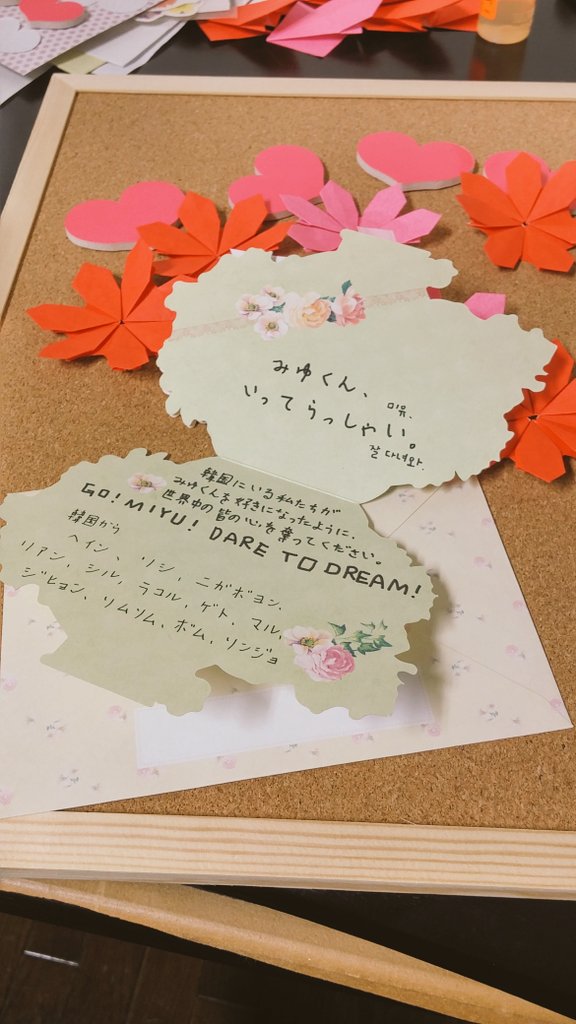 みゆくん、
미유.
いってらっしゃい。
잘 다녀와.
韓国にいる私たちが
みゆくんを好きになったように、
世界中の皆の心を奪ってください。
GO! MIYU! DARE TO DREAM!
韓国から
ヘイン、リシ、ニガボヨン、
リアン、シル、ラコル、ゲト、マル、
ジヒョン、リムソム、ボム、リンジョ